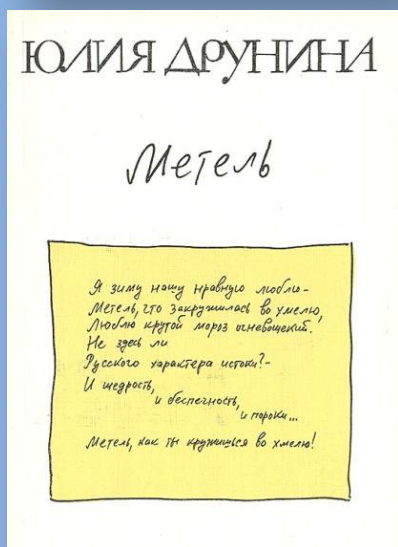 ЮЛИЯ ДРУНИНА
Метель
Я зиму нашу нравную люблю –
Метель, что закружилась во хмелю,
Люблю крутой мороз огневощекий.
Не здесь ли
Русского характера истоки? –
И щедрость,
и беспечность,
и пороки...
Метель, как ты кружишься во хмелю!